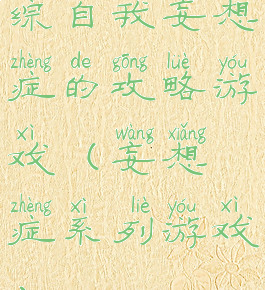 综自我妄想
zhèng de gōng luè yóu
症的攻略游
xì wàng xiǎng
戏(妄想
zhèng xì liè yóu xì
症系列游戏